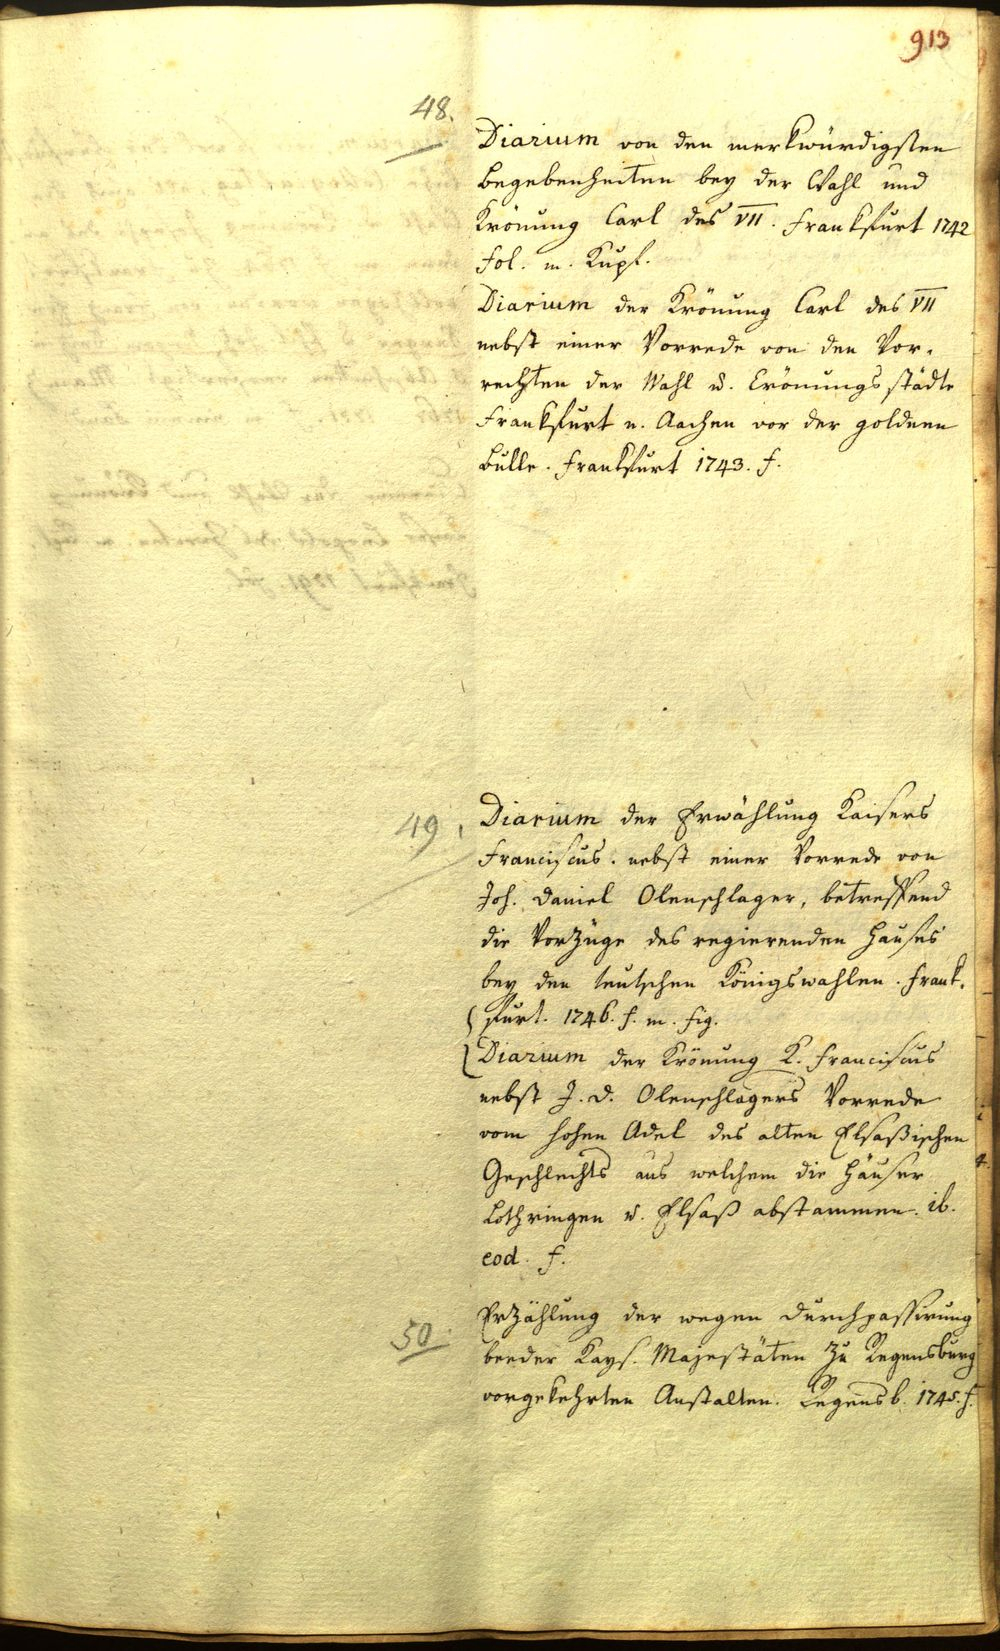 913
48.
Diarium von den merkwürdigsten
Begebenheiten bey der Wahl und
Krönung Carl des VII. Frankfurt 1742
fol. m. Kupf.
Diarium der Krönung Carl des VII
nebst einer Vorrede von den Vor-
rechten der Wahl u. Crönungsstädte
Frankfurt u. Aachen vor der goldnen
Bulle. Frankfurt 1743. f.
49.
Diarium der Erwählung Kaisers
Franciscus. nebst einer Vorrede von
Joh. Daniel Olenschlager, betreffend
die Vorzüge des regierenden Hauses
bey den teutschen Königswahlen. Frank-
furt. 1746. f. m. fig.
Diarium der Krönung K. Franciscus
nebst J. D. Olenschlagers Vorrede
vom hohen Adel des alten Elsaßischen
Geschlechts aus welchem die Häuser
Lothringen u. Elsaß abstammen. ib.
eod. f.
50.
Erzählung der wegen Durchpassirung
beeder Kays. Majestäten zu Regensburg
vorgekehrten Anstalten. Regensb. 1745. f.